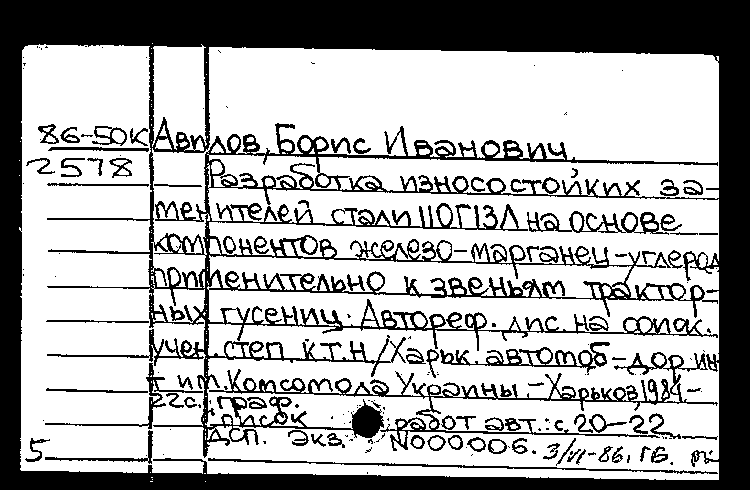 86-50К Авилов, Борис Иванович.
2578 Разработка износостойких за-
менителей стали 110Г13Л на основе
компонентов железо-марганец-углерод
применительно к звеньям трактор-
ных гусениц. Автореф. дис. на соиск.
учен. степ. к.т.н./Харьк. автомоб-дор. ин-
т им. Комсомола Украины.-Харьков, 1984.-
22с., граф.
Список работ авт.: с. 20-22
ДСП. Экз. N000006. 3/VI-86. ГБ.
5